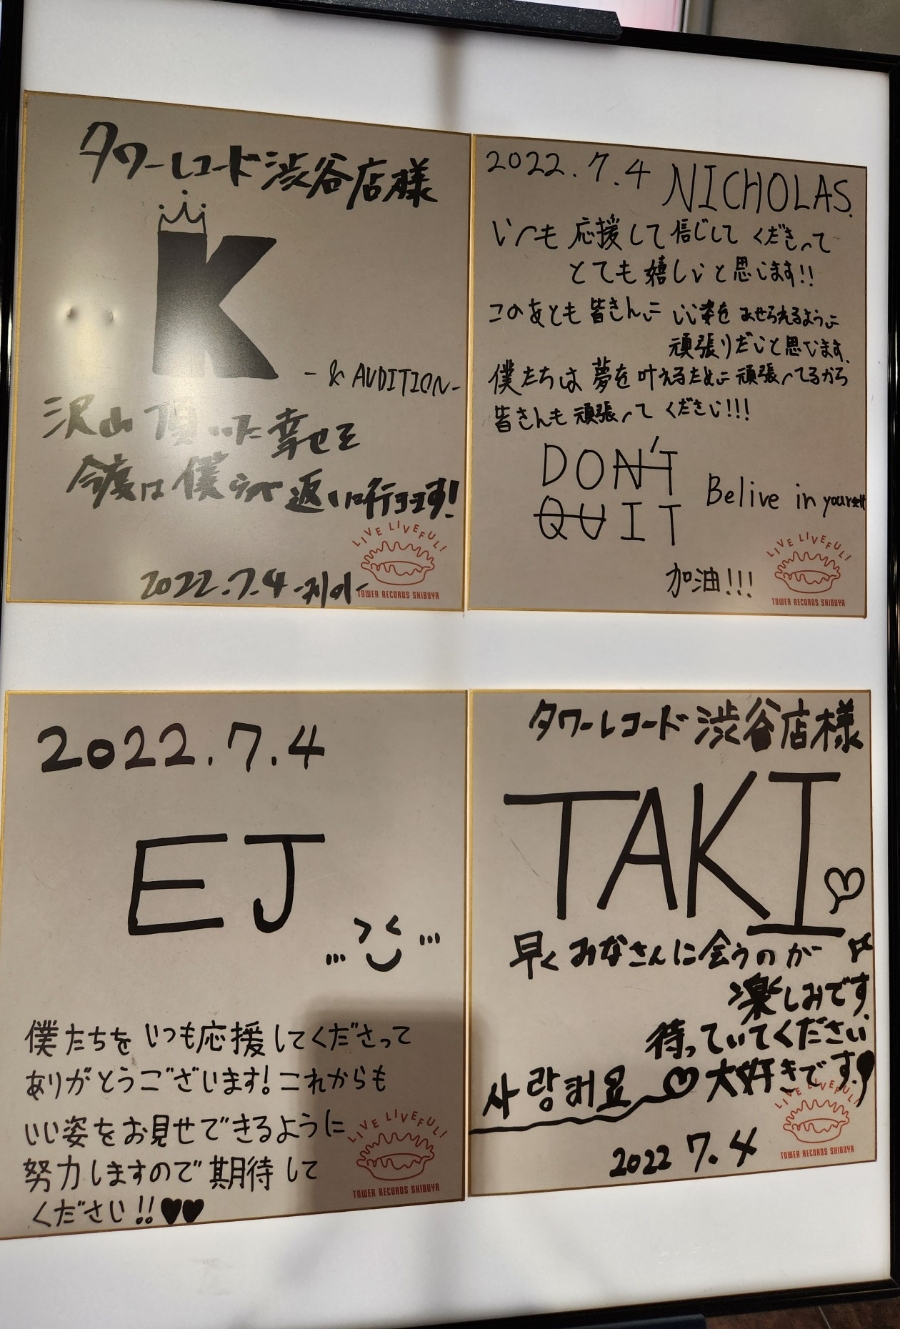 タワーレコード渋谷店様
K
- & AUDITION -
沢山頂いた幸せを
今度は僕らが返しに行きます!
2022.7.4 -케이-
LIVE LIVEFUL!
TOWER RECORDS SHIBUYA
2022.7.4 NICHOLAS.
いつも応援して信じてくださって
とても嬉しいと思じます!!
このあとも皆さんに いい姿を みせられるように
頑張りたいと思じます.
僕たちは夢を叶えるために頑張ってるから
皆さんも頑張ってください!!!
DON'T
QUIT
Belive in yourself
加油!!!
LIVE LIVEFUL!
TOWER RECORDS SHIBUYA
2022.7.4
EJ
僕たちをいつも応援してくださって
ありがとうございます!これからも
いい姿をお見せできるように
努力しますので期待して
ください!!♥♥
LIVE LIVEFUL!
TOWER RECORDS SHIBUYA
タワーレコード渋谷店様
TAKI
早くみなさんに会うのが
楽しみです.
待っていてください
사랑해요 ♡ 大好きです.♥
2022 7.4
LIVE LIVEFUL!
TOWER RECORDS SHIBUYA